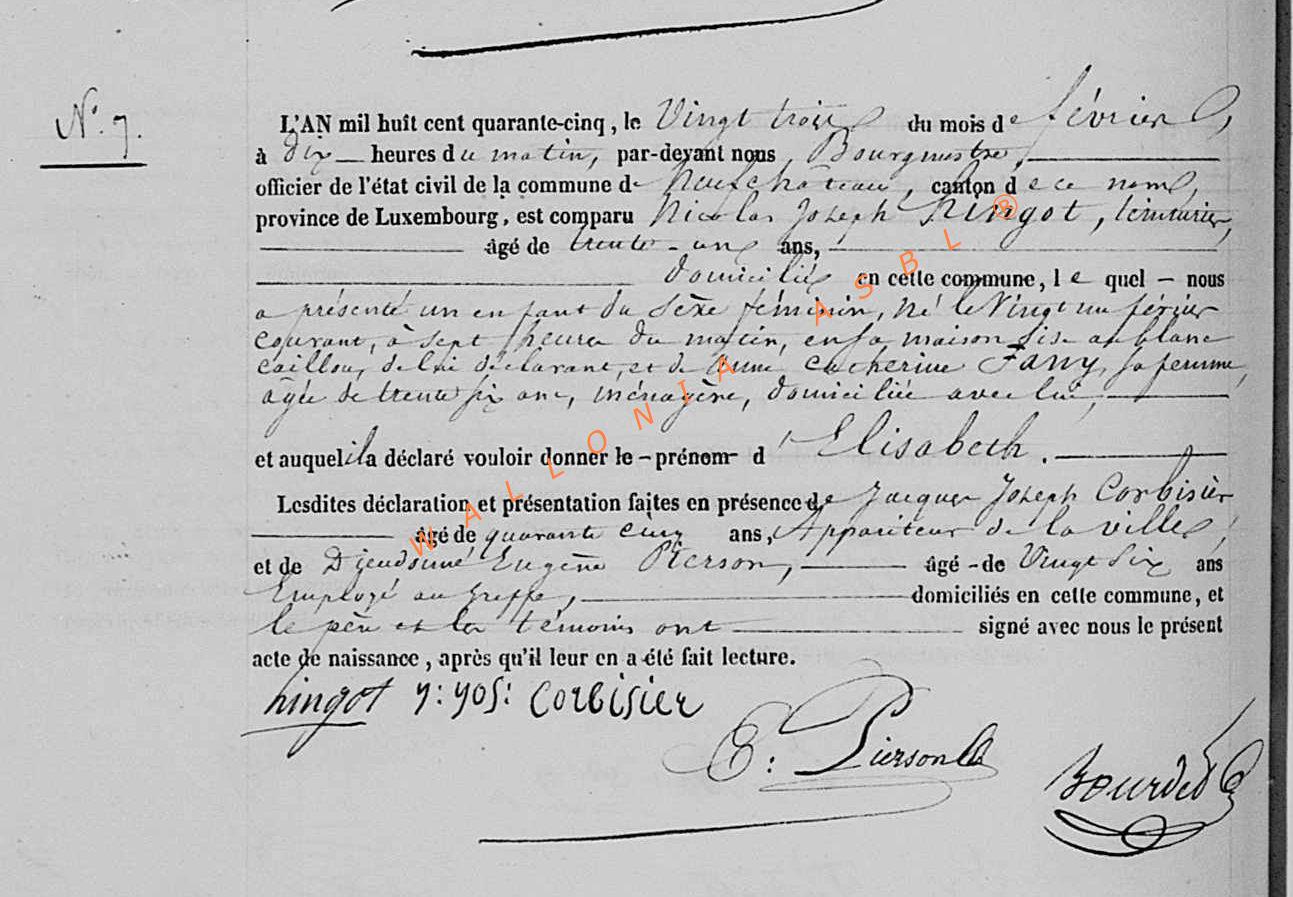 N° 7.
L'AN mil huit cent quarante-cinq, le Vingt trois du mois de février,
à dix heures du matin, par-devant nous, Bourgmestre,
officier de l'état civil de la commune de Neufchâteau, canton de ce nom,
province de Luxembourg, est comparu Nicolas Joseph Hingot, teinturier,
âgé de trente-un ans,
domicilié en cette commune, lequel nous
a présenté un enfant du sèxe féminin, né le Vingt un février
courant, à sept heures du matin, en sa maison sise au blanc
caillou, de lui déclarant, et de Anne Catherine Fany, sa femme,
âgée de trente six ans, ménagère, domiciliée avec lui,
et auquel il a déclaré vouloir donner le prénom d'Elisabeth.
Lesdites déclaration et présentation faites en présence de Jacques Joseph Corbisier
âgé de quarante cinq ans, Appariteur de la ville,
et de Dieudonné Eugène Pierson, âgé de Vingt six ans
Employé au Greffe, domiciliés en cette commune, et
le père et les témoins ont signé avec nous le présent
acte de naissance, après qu'il leur en a été fait lecture.
hingot J: Jos: Corbisier
E: Pierson
WALLONIA ASBL ®